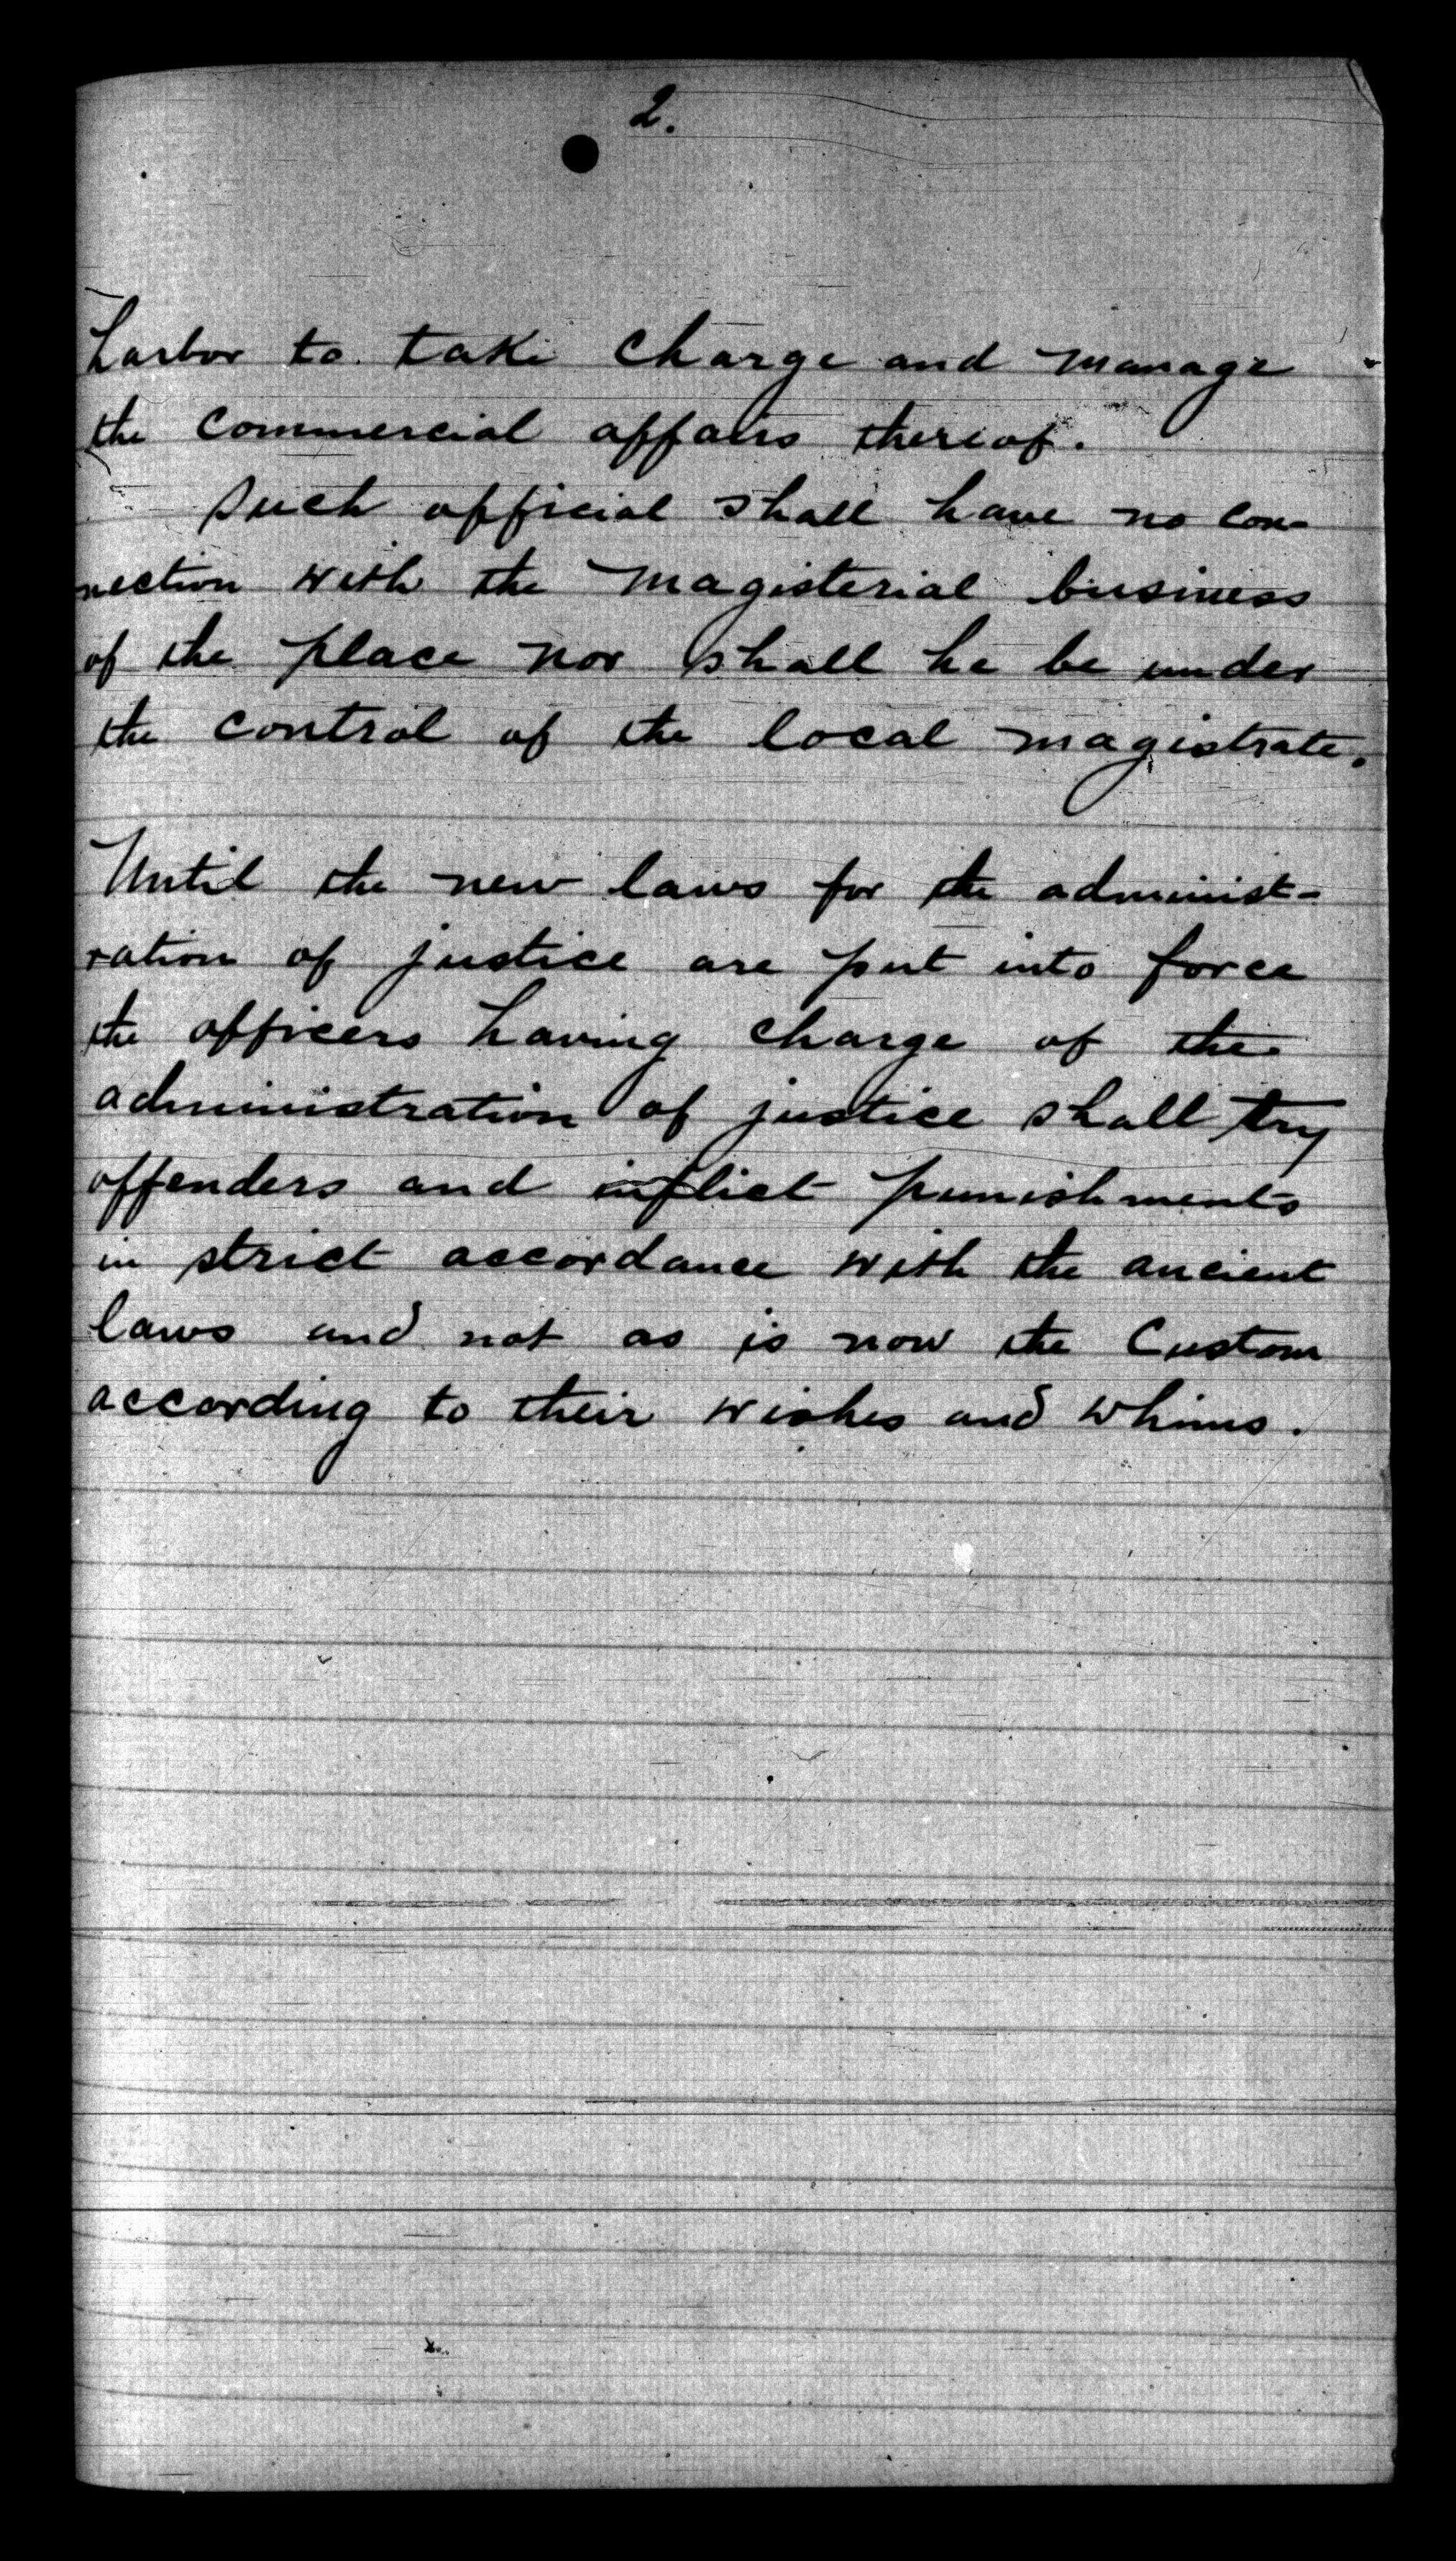 2.
harbor to take charge and manage
the commercial affairs thereof.
Such official shall have no con-
nection with the magisterial business
of the place nor shall he be under
the control of the local magistrate.
Until the new laws for the administ-
ration of justice are put into force
the officers having charge of the
administration of justice shall try
offenders and inflict punishments
in strict accordance with the ancient
laws and not as is now the Custom
according to their wishes and whims.